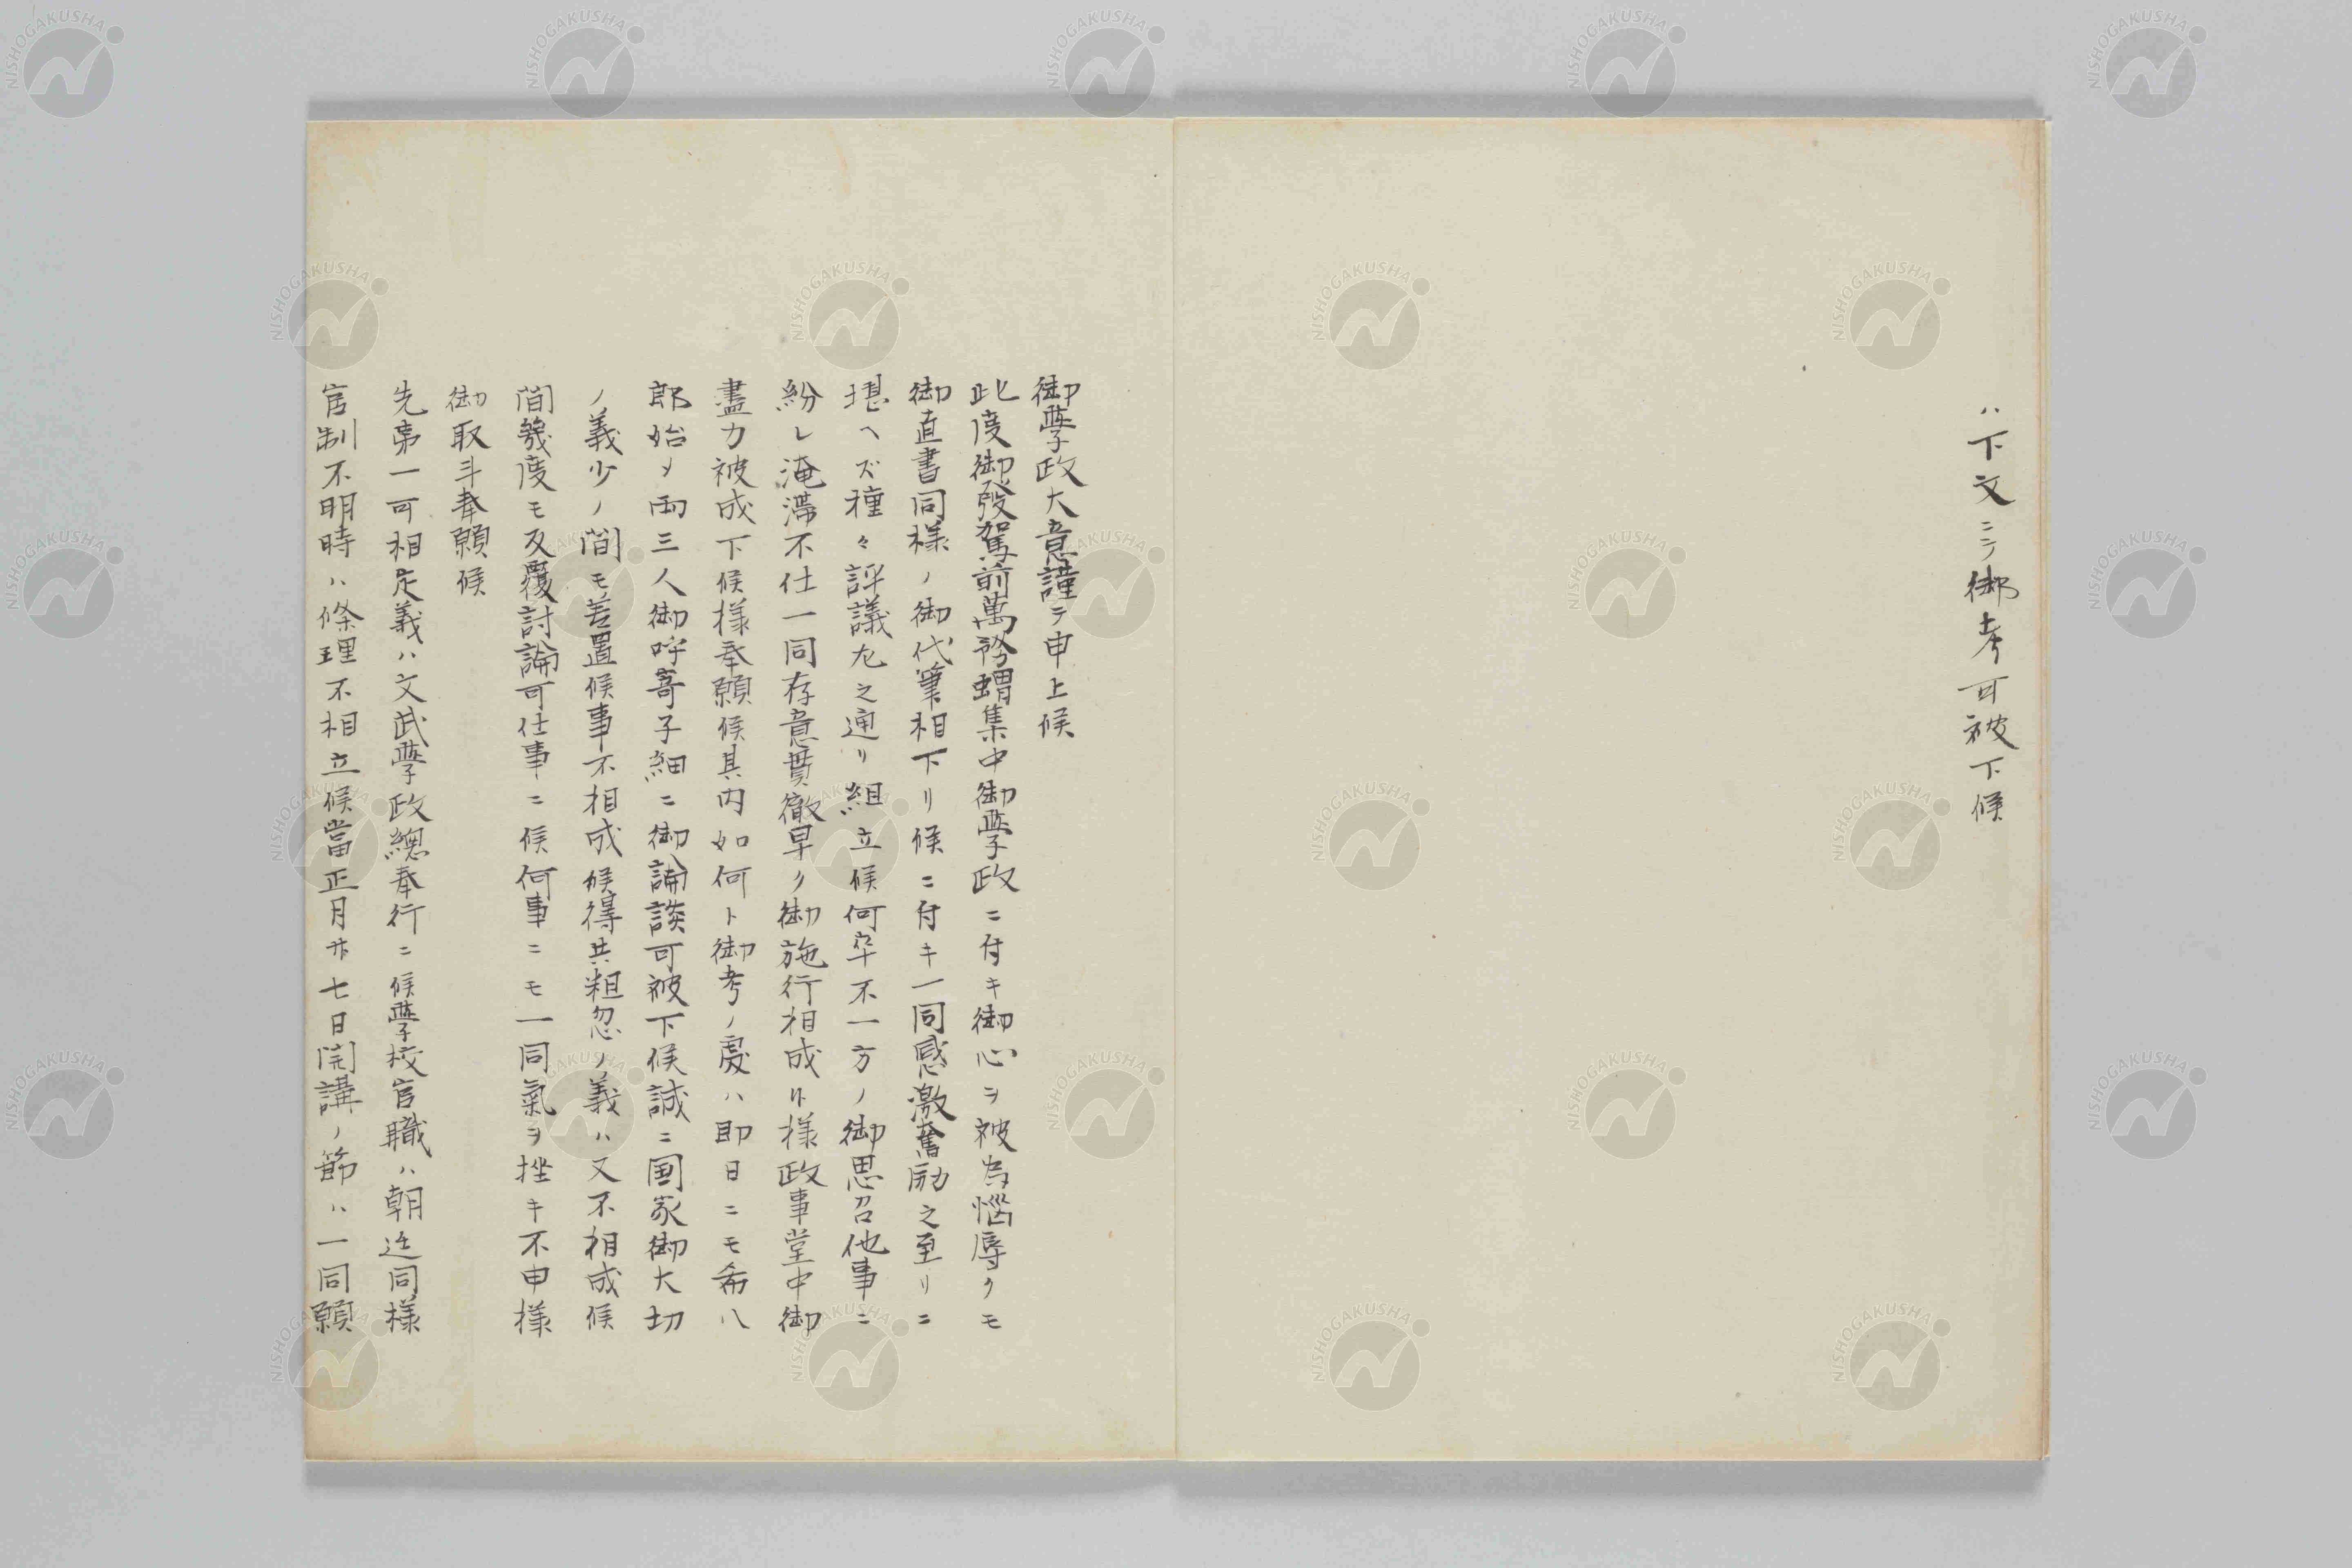 ハ下文ニテ御考可被下候
御學政大意謹テ申上候
此度御發駕前萬務蝟集中御學政ニ付キ御心ヲ被為惱辱クモ
御直書同様ノ御代筆相下リ候ニ付キ一同感激奮励之至リニ
堪ヘズ種々評議左之通リ組立候何卒不一方ノ御思召他事ニ
紛レ淹滯不仕一同存意貫徹早ク御施行相成候様政事堂中御
盡力被成下候様奉願候其内如何ト御考ノ處ハ即日ニモ希八
郎始メ両三人御呼寄子細ニ御論談可被下候誠ニ国家御大切
ノ義少ノ間モ差置候事不相成候得共粗忽ノ義ハ又不相成候
間幾度モ反覆討論可仕事ニ候何事ニモ一同氣ヲ挫キ不申様
御取斗奉願候
先第一可相定義ハ文武學政總奉行ニ候學校官職ハ朝廷同様
官制不明時ハ條理不相立候當正月廿七日開講ノ節ハ一同願
NISHOGAKUSHA